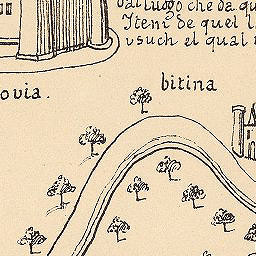 dal luogo che da qu
Item de quel l
usuch el qual
ovia.
bitina